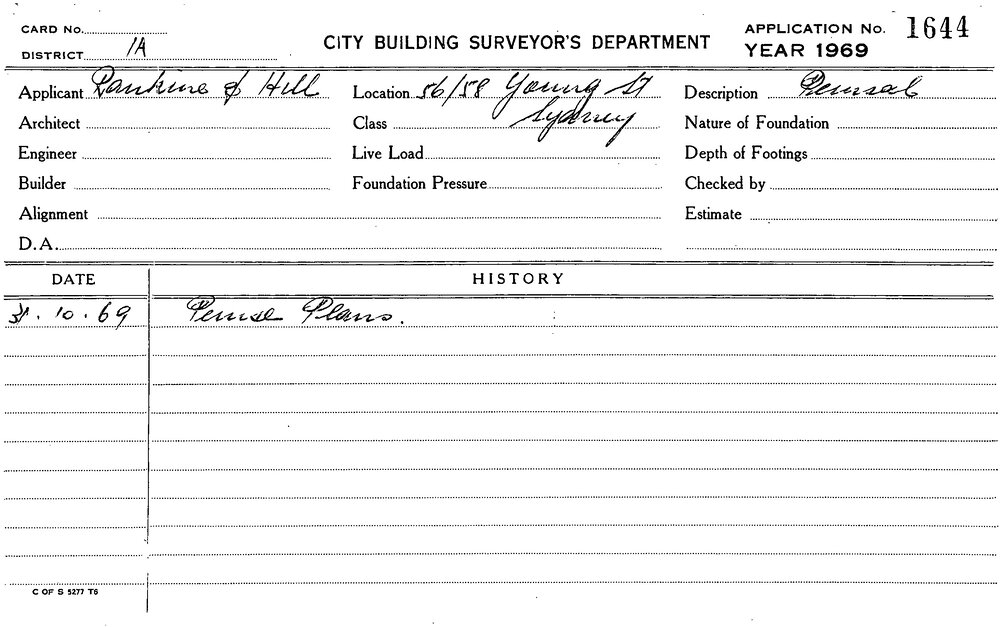 CARD No. APPLICATION No. 1644
DISTRICT 1A CITY BUILDING SURVEYOR'S DEPARTMENT YEAR 1969
Applicant Rankine & Hill Location 56/58 Young St Description Perusal
Architect Class Sydney Nature of Foundation
Engineer Live Load Depth of Footings
Builder Foundation Pressure Checked by
Alignment Estimate
D.A.
DATE HISTORY
31.10.69 Peruse Plans.
C OF S 5277 T6